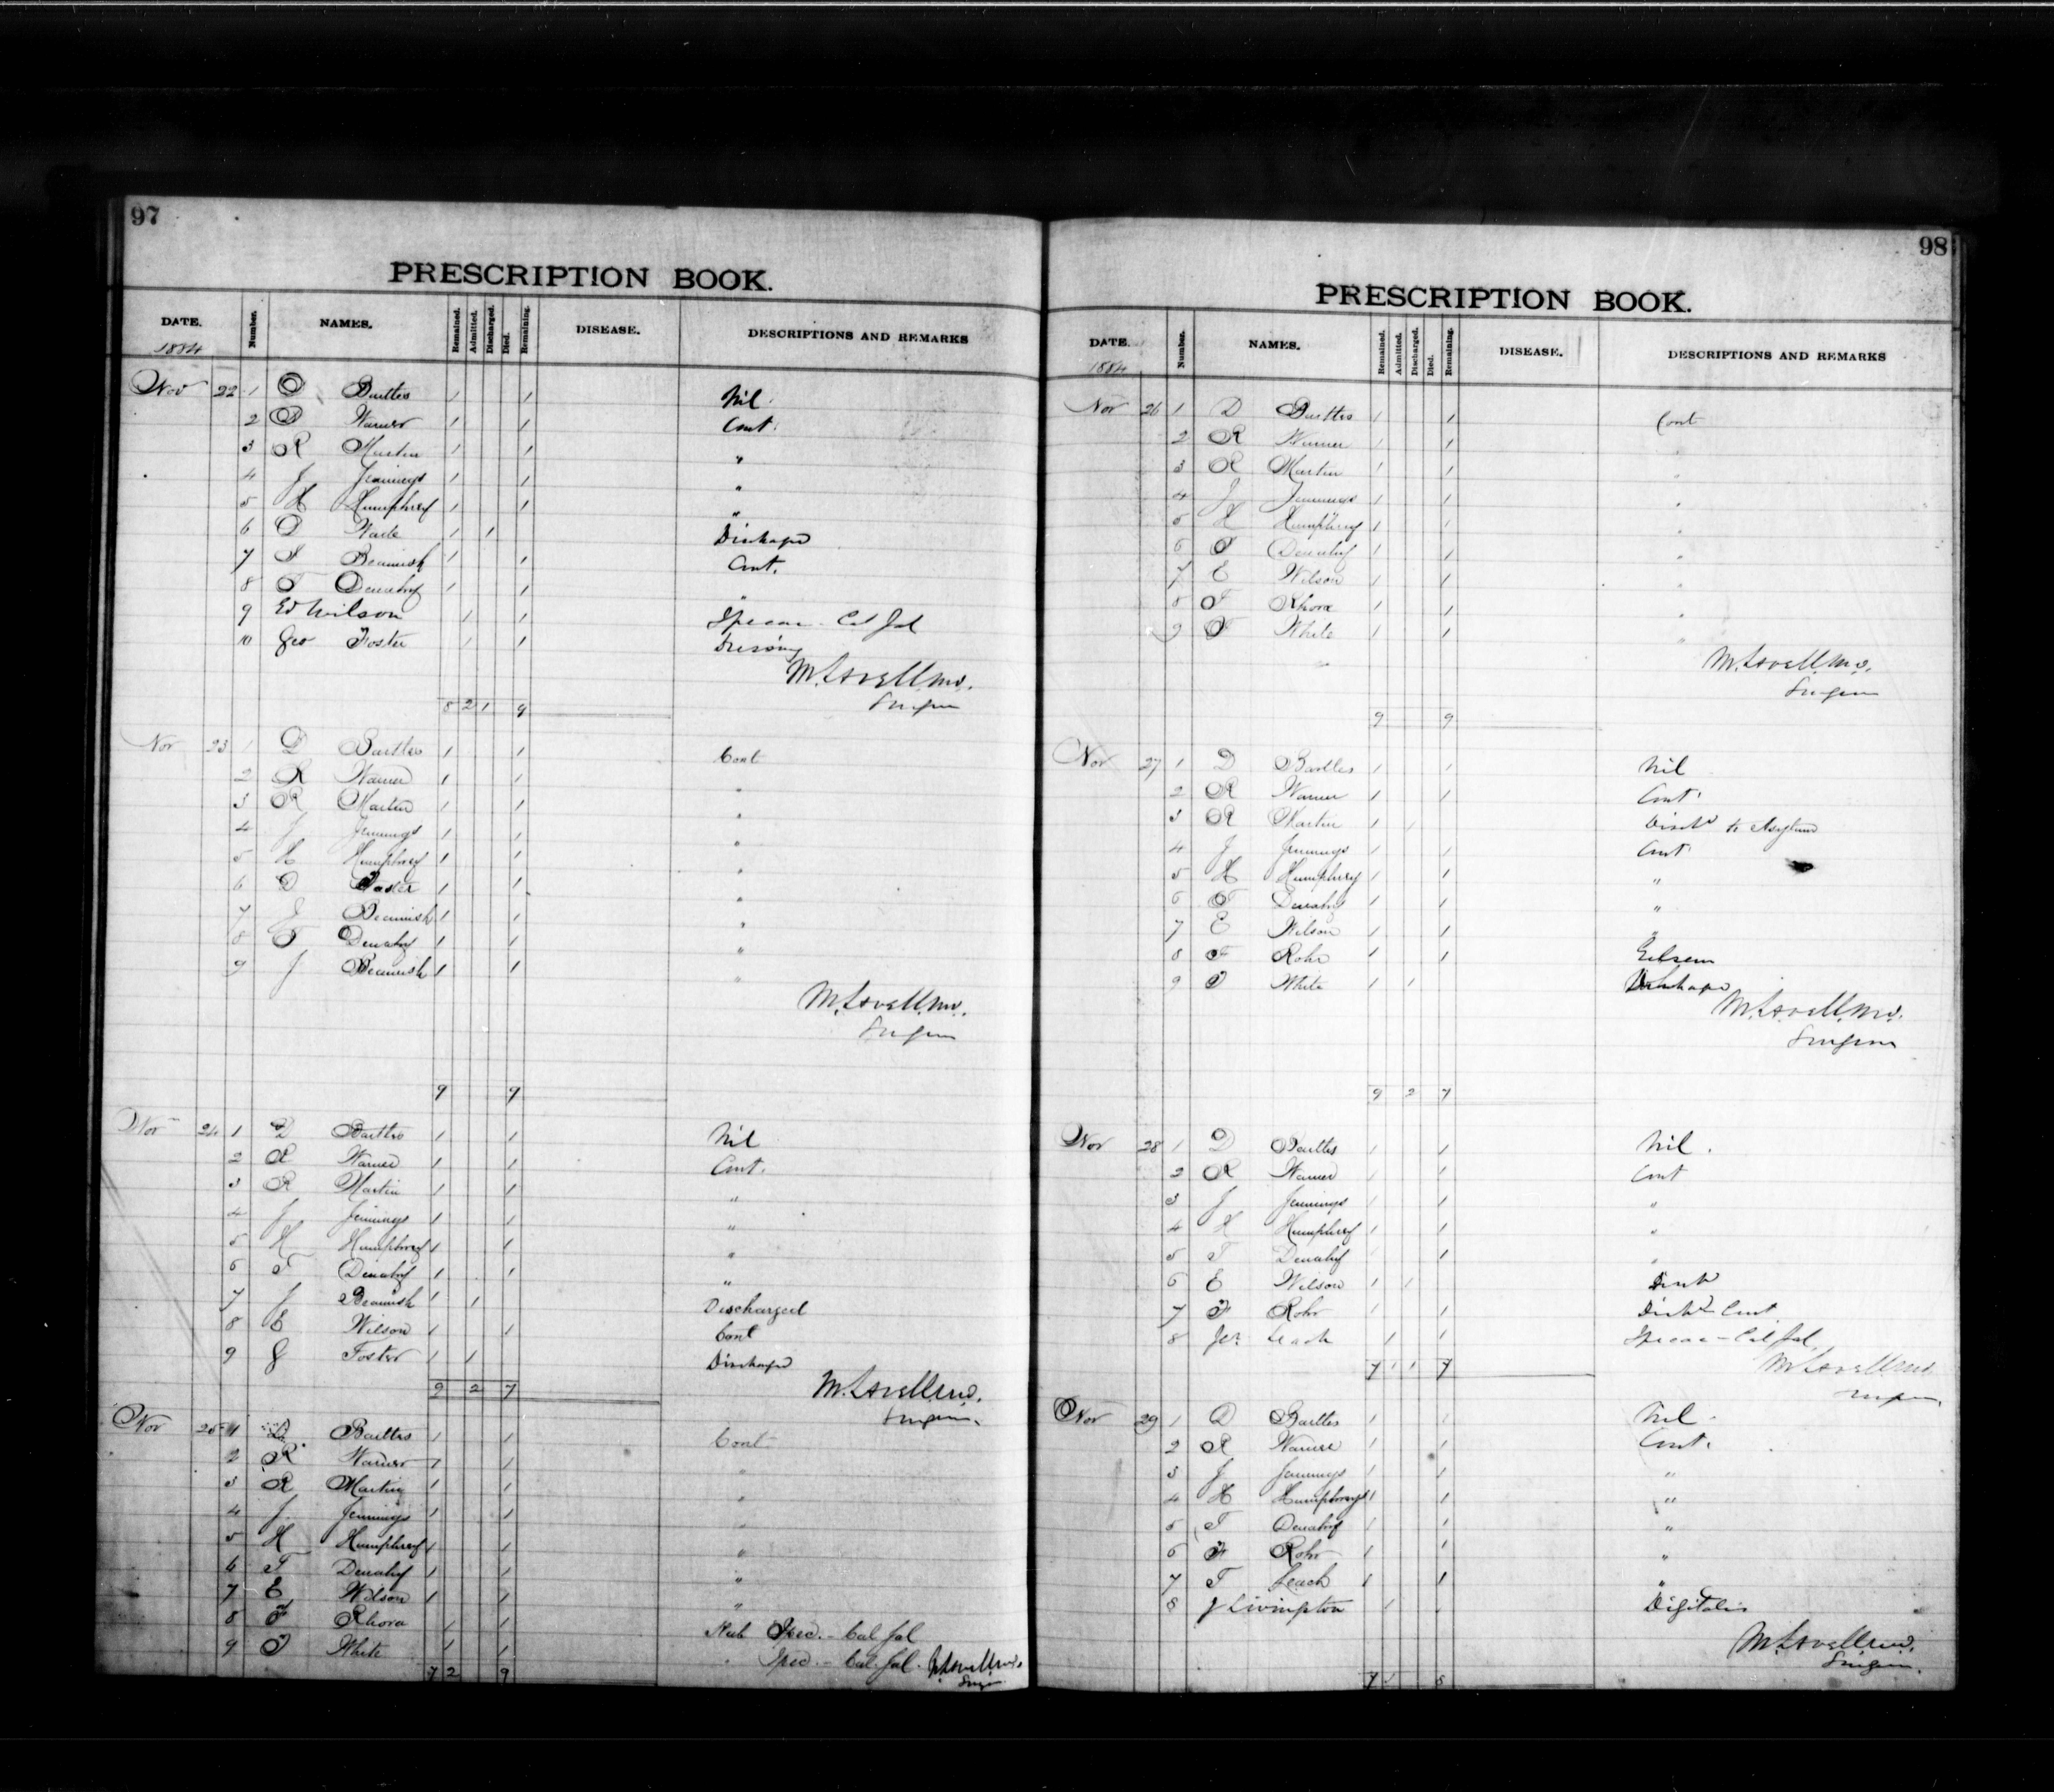 97
PRESCRIPTION BOOK.
DATE. Number. NAMES. Remained. Admitted. Discharged. Died. Remaining. DISEASE. DESCRIPTIONS AND REMARKS
1884
Nov 22 1 D Bartles 1 1 Nil
2 R Warner 1 1 Cont.
3 R Martin 1 1 "
4 J Jennings 1 1 "
5 H Humphrey 1 1 "
6 1 1 Discharged
7 J Beamish 1 1 Cont.
8 T Denahy 1 1 "
9 Ed Wilson 1 1 Ipecac - Cal Jal
10 Geo Foster 1 1 Dressing
M. Lavell M.D.
Surgeon
8 2 1 9
Nov 23 1 D Bartles 1 1 Cont
2 R Warner 1 1 "
3 R Martin 1 1 "
4 J Jennings 1 1 "
5 H Humphrey 1 1 "
6 Foster 1 1 "
7 J Beamish 1 1 "
8 T Denahy 1 1 "
9 J Beamish 1 1 "
M. Lavell M.D.
Surgeon
9 9
Nov 24 1 D Bartles 1 1 Nil
2 R Warner 1 1 Cont.
3 R Martin 1 1 "
4 J Jennings 1 1 "
5 H Humphrey 1 1 "
6 T Denahy 1 1 "
7 J Beamish 1 1 Discharged
8 E Wilson 1 1 Cont
9 G Foster 1 1 Discharged
9 2 7 M. Lavell M.D.
Surgeon.
Nov 25 1 D Bartles 1 1 Cont
2 R Warner 1 1 "
3 R Martin 1 1 "
4 J. Jennings 1 1 "
5 H Humphrey 1 1 "
6 T Denahy 1 1 "
7 E Wilson 1 1 "
8 F Rhora 1 1 Ipec. - Cal Jal
9 T White 1 1 " Ipec. - Cal. Jal. M. Lavell M.D.
7 2 9 Surgeon
98
PRESCRIPTION BOOK.
DATE. Number. NAMES. Remained. Admitted. Discharged. Died. Remaining. DISEASE. DESCRIPTIONS AND REMARKS
1884
Nov 26 1 D Bartles 1 1 Cont
2 R Warner 1 1 "
3 R Martin 1 1 "
4 J Jennings 1 1 "
5 H Humphrey 1 1 "
6 T Denahy 1 1 "
7 E Wilson 1 1 "
8 F Rhora 1 1 "
9 T White 1 1 "
M. Lavell M.D.
Surgeon
9 9
Nov 27 1 D Bartles 1 1 Nil
2 R Warner 1 1 Cont.
3 R Martin 1 1 Disch'd to Asylum
4 J Jennings 1 1 Cont
5 H Humphrey 1 1 "
6 T Denahy 1 1 "
7 E Wilson 1 1 "
8 F Rohr 1 1
9 T White 1 1 Discharged
M. Lavell M.D.
Surgeon
9 2 7
Nov 28 1 D Bartles 1 1 Nil.
2 R Warner 1 1 Cont
3 J Jennings 1 1 "
4 H Humphrey 1 1 "
5 T Denahy 1 1 "
6 E Wilson 1 1 Disch'd
7 F Rohr 1 1 Cont
8 Leach 1 1 Ipecac - Cal Jal.
7 1 1 7 M. Lavell M.D.
Surgeon.
Nov 29 1 D Bartles 1 1 Nil
2 R Warner 1 1 Cont.
3 J Jennings 1 1 "
4 H Humphrey 1 1 "
5 T Denahy 1 1 "
6 F Rohr 1 1 "
7 T Leach 1 1 "
8 J Livingston 1 1 Digitalis
M. Lavell M.D.
Surgeon.
7 1 8